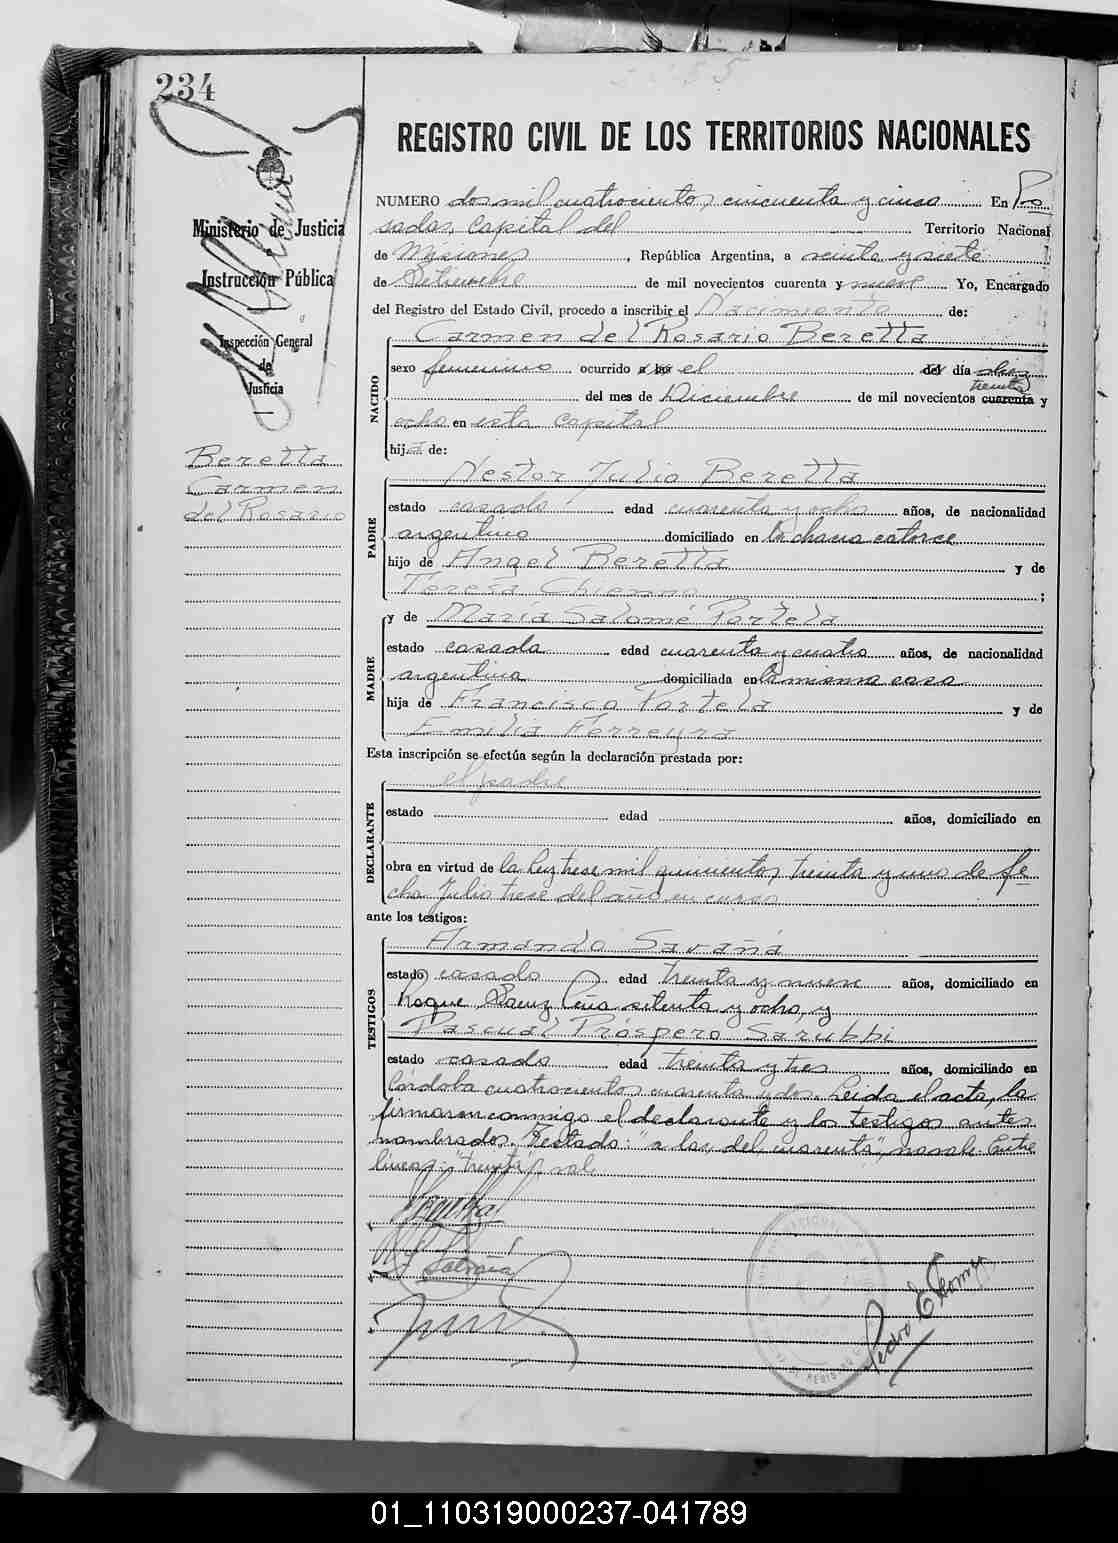 234
REGISTRO CIVIL DE LOS TERRITORIOS NACIONALES
Ministerio de Justicia
Instrucción Pública
Inspección General
de
Justicia
Beretta
Carmen
del Rosario
NUMERO dos mil cuatrocientos cincuenta y cinco En Po
sadas, Capital del Territorio Nacional
de Misiones, República Argentina, a veinte y siete
de Setiembre de mil novecientos cuarenta y nueve Yo, Encargado
del Registro del Estado Civil, procedo a inscribir el Nacimiento de:
NACIDO
Carmen del Rosario Beretta
sexo femenino ocurrido a las el del día diez
treinta
del mes de Diciembre de mil novecientos cuarenta y
ocho en esta Capital
hija de:
PADRE
Nestor Julio Beretta
estado casado edad cuarenta y ocho años, de nacionalidad
argentino domiciliado en la chacra catorce
hijo de Angel Beretta y de
Teresa ;
MADRE
y de María Salomé Portela
estado casada edad cuarenta y cuatro años, de nacionalidad
argentina domiciliada en la misma casa
hija de Francisco Portela y de
Emilia Ferreyra
Esta inscripción se efectúa según la declaración prestada por:
DECLARANTE
el padre
estado edad años, domiciliado en
obra en virtud de la Ley trece mil quinientos treinta y uno de fe
cha Julio trece del año en curso
ante los testigos:
TESTIGOS
Armando
estado casado edad treinta y nueve años, domiciliado en
Roque Saenz Peña setenta y ocho, y
Pascual Próspero Sarubbi
estado casado edad treinta y tres años, domiciliado en
Córdoba cuatrocientos cuarenta y dos. Leida el acta, la
firmaron conmigo el declarante y los testigos antes
nombrados. Testado: "a las, del, cuarenta", no vale. Entre
lineas: "treinta", vale
01_110319000237-041789